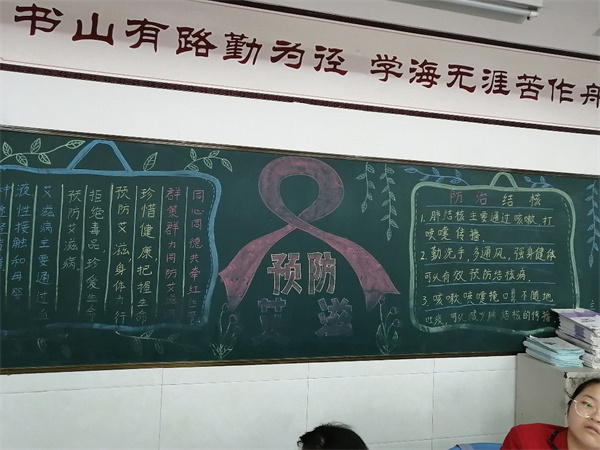 书山有路勤为径 学海无涯苦作舟
同心同德共牵红
群策群力同防艾滋
珍惜健康把握生命
预防艾滋身体力行
拒绝毒品,珍爱生命
预防艾滋病。
艾滋病主要通过血
液性接触和母婴
预防
艾滋
防治结核
1.肺结核主要通过咳嗽、打
喷嚏传播。
2.勤洗手、多通风、强身健体
可以有效预防结核病。
3.咳嗽喷嚏掩口鼻、不随地
吐痰,可以减少肺结核的传播